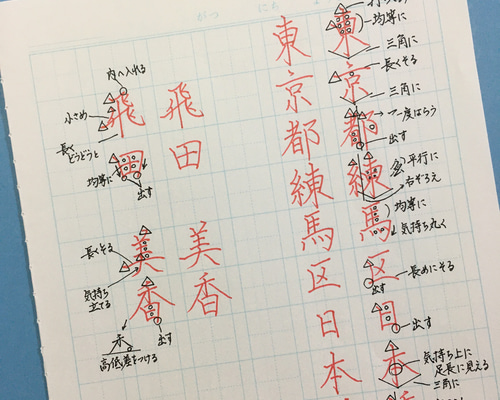 がつ にち
東京都練馬区日本
均等に
三角に
長くそる
三角に
度はらう
出す
平行に
右ぞろえ
均等に
気持ち丸く
長めにそる
出す
出す
気持ち上に
足長に見える
三角に
東京都練馬区日本
飛田
美香
飛田
内へ入れる
小さめ
長く
どうどうと
均等に
出す
美香
長くそる
気持ち
立てる
出す
高低差をつける